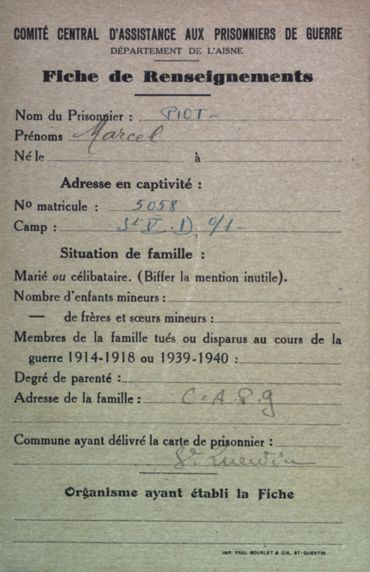 COMITÉ CENTRAL D'ASSISTANCE AUX PRISONNIERS DE GUERRE
DÉPARTEMENT DE L'AISNE
Fiche de Renseignements
Nom du Prisonnier : PIOT
Prénoms Marcel
Né le à
Adresse en captivité :
No matricule : 5058
Camp : St V. D.
Situation de famille :
Marié ou célibataire. (Biffer la mention inutile).
Nombre d'enfants mineurs :
— de frères et sœurs mineurs :
Membres de la famille tués ou disparus au cours de la
guerre 1914-1918 ou 1939-1940 :
Degré de parenté :
Adresse de la famille : C.A.P.g
Commune ayant délivré la carte de prisonnier :
St Quentin
Organisme ayant établi la Fiche
IMP. PAUL BOURLET & CIE, ST-QUENTIN